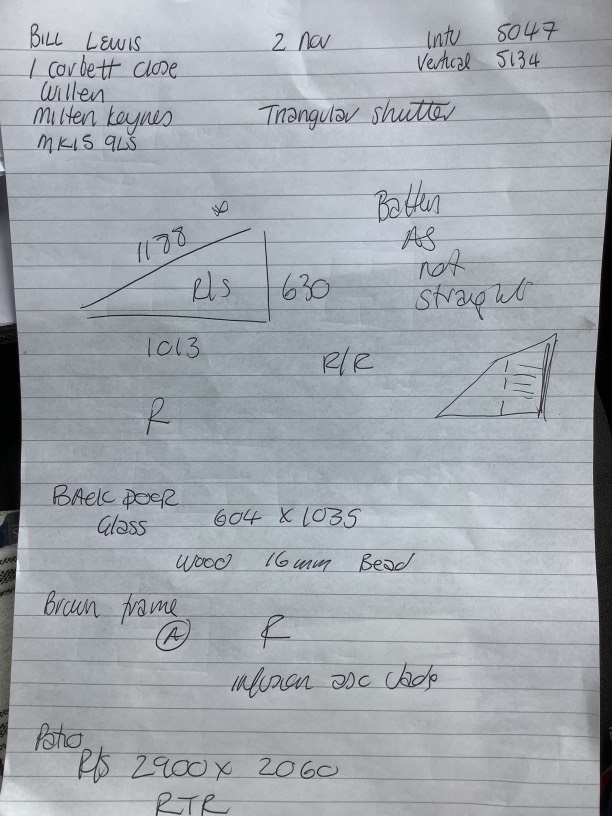 BILL LEWIS
2 Nov
Intu 5047
Vertical 5134
1 corbett close
Willen
Milten keynes
MK15 9LS
Triangular shutter
1188
R/s
630
1013
Batten
As
not
straight
R/R
R
BAck DOOR
Glass 604 x 1035
Wood 16mm Bead
Brown frame
A
R
infusion asc
Patio
R/s 2900 x 2060
RTR